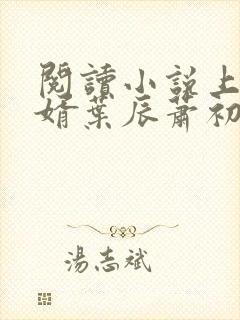 閱讀小說上
婿葉辰蕭初
湯志斌